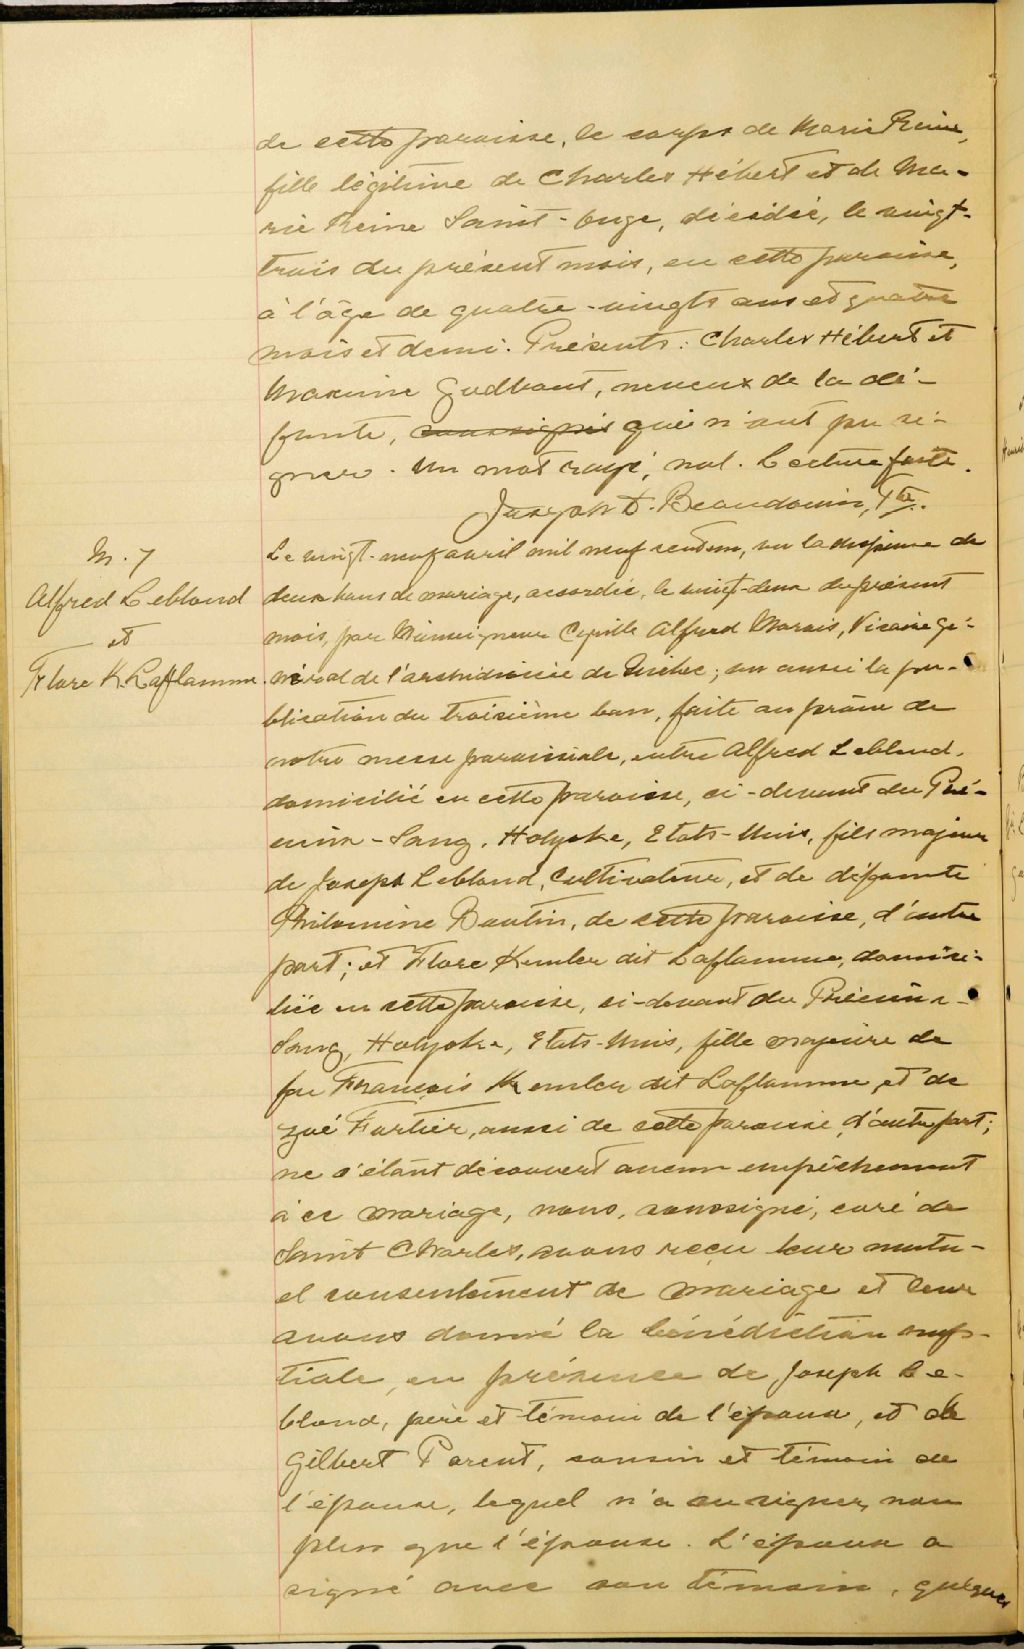 de cette paroisse, le corps de Marie Reine,
fille légitime de Charles Hébert et de Ma-
rie Reine Saint-Onge, décédée, le vingt-
trois du présent mois, en cette paroisse,
à l'âge de quatre-vingts ans et quatre
mois et demi. Présents: Charles Hébert et
Maxime Godbout, neveux de la dé-
funte, soussignés qui n'ont pu si-
gner. Un mot rayé, nul. Lecture faite.
Joseph D. Beaudoin, Ptre.
M. 7
Alfred Leblond
et
Flore K. Laflamme.
Le vingt-neuf avril mil neuf cent un, vu la dispense de
deux bans de mariage, accordée, le vingt-deux du présent
mois, par Monseigneur Cyrille Alfred Marois, Vicaire gé-
néral de l'archidiocèse de Québec; vu aussi la pu-
blication du troisième ban, faite au prône de
notre messe paroissiale, entre Alfred Leblond,
domicilié en cette paroisse, ci-devant du Pré-
cieux-Sang, Holyoke, Etats-Unis, fils majeur
de Joseph Leblond, Cultivateur, et de défunte
Philomène Boutin, de cette paroisse, d'autre
part; et Flore Kemler dit Laflamme, domici-
liée en cette paroisse, ci-devant du Précieux-
Sang, Holyoke, Etats-Unis, fille majeure de
feu François Kemler dit Laflamme, et de
Zoé Fortier, aussi de cette paroisse, d'autre part;
ne s'étant découvert aucun empêchement
à ce mariage, nous, soussigné, curé de
Saint Charles, avons reçu leur mutu-
el consentement de mariage et leur
avons donné la bénédiction nup-
tiale, en présence de Joseph Le-
blond, père et témoin de l'époux, et de
Gilbert Parent, cousin et témoin de
l'épouse, lequel n'a su signer, non
plus que l'épouse. L'époux a
signé avec son témoin, quelques